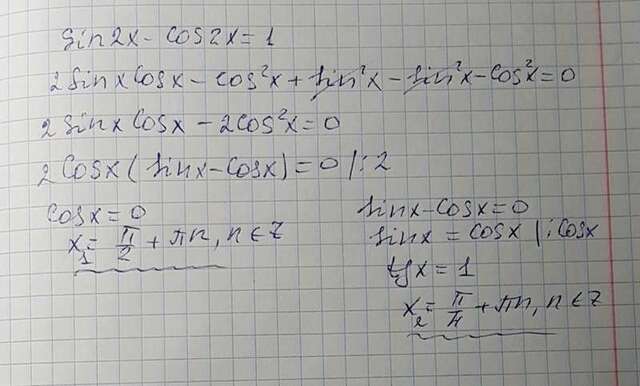 sin2x - cos2x = 1
2sinxcosx - cos²x + sin²x - sin²x - cos²x = 0
2sinxcosx - 2cos²x = 0
2cosx(sinx - cosx) = 0 |:2
cosx = 0
x₁ = π/2 + πn, n∈Z
sinx - cosx = 0
sinx = cosx |:cosx
tgx = 1
x₂ = π/4 + πn, n∈Z